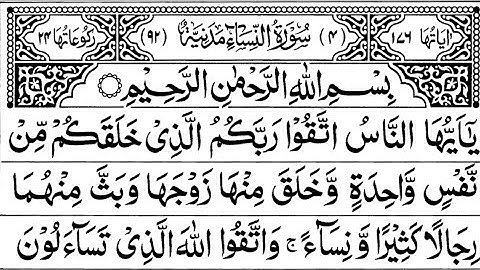 اٰيَاتُهَا ١٧٦ (٤) سُوْرَةُ النِّسَآءِ مَدَنِيَّةٌ (٩٢) رُكُوْعَاتُهَا ٢٤
بِسْمِ اللّٰهِ الرَّحْمٰنِ الرَّحِيْمِ
يٰٓاَيُّهَا النَّاسُ اتَّقُوْا رَبَّكُمُ الَّذِيْ خَلَقَكُمْ مِّنْ
نَّفْسٍ وَّاحِدَةٍ وَّخَلَقَ مِنْهَا زَوْجَهَا وَبَثَّ مِنْهُمَا
رِجَالًا كَثِيْرًا وَّنِسَآءً ۚ وَاتَّقُوا اللّٰهَ الَّذِيْ تَسَآءَلُوْنَ